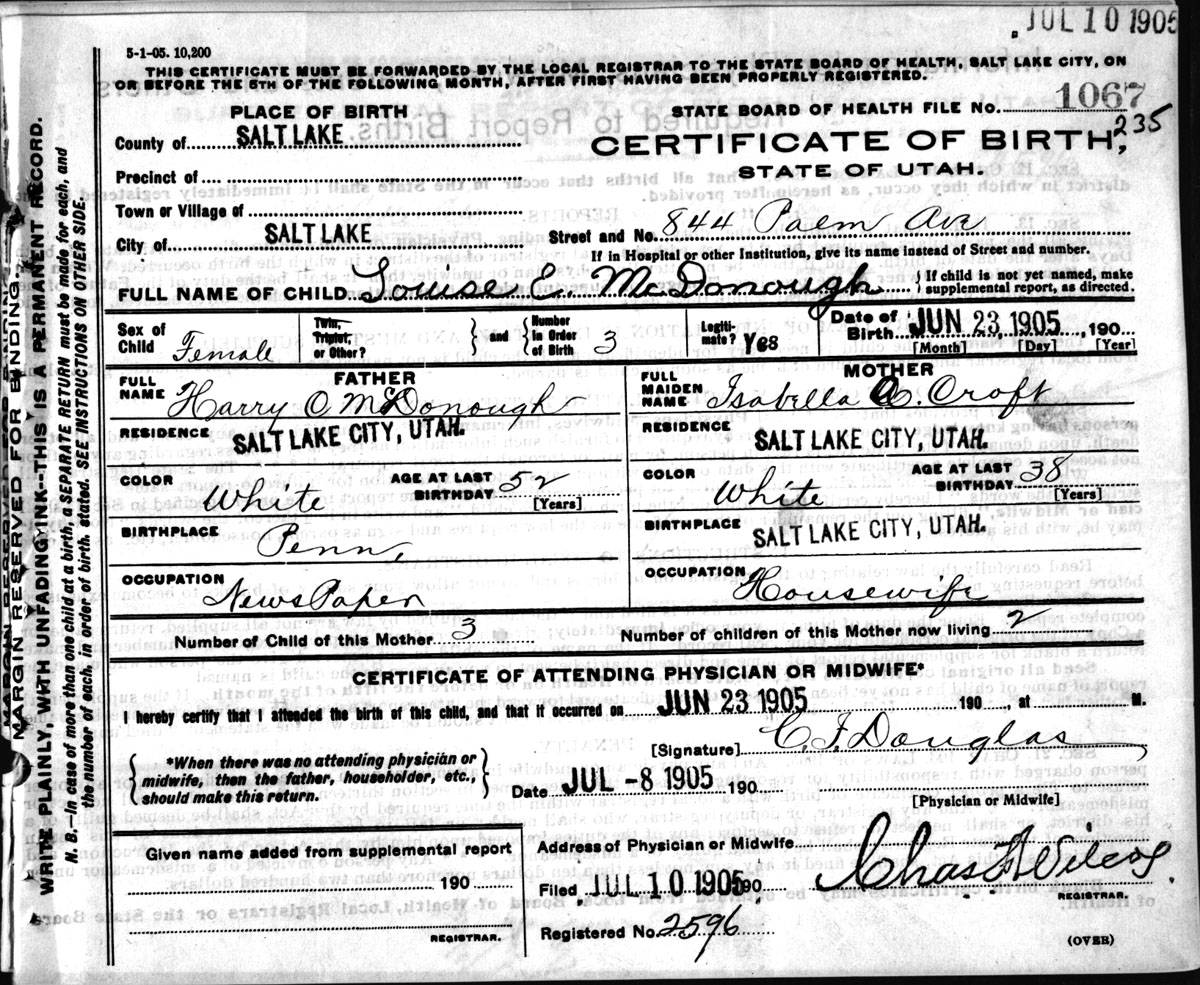 JUL 10 1905
5-1-05. 10,200
THIS CERTIFICATE MUST BE FORWARDED BY THE LOCAL REGISTRAR TO THE STATE BOARD OF HEALTH, SALT LAKE CITY, ON
OR BEFORE THE 5TH OF THE FOLLOWING MONTH, AFTER FIRST HAVING BEEN PROPERLY REGISTERED.
PLACE OF BIRTH
STATE BOARD OF HEALTH FILE No. 1067
235
County of SALT LAKE
CERTIFICATE OF BIRTH,
STATE OF UTAH.
Precinct of
Town or Village of
City of SALT LAKE
Street and No. 844 Palm Ave
If in Hospital or other Institution, give its name instead of Street and number.
FULL NAME OF CHILD Louise C. McDonough
If child is not yet named, make
supplemental report, as directed.
Sex of Child Female
Twin, Triplet, or Other?
and
Number in Order of Birth 3
Legitimate? Yes
Date of Birth JUN 23 1905, 190
[Month] [Day] [Year]
FATHER
FULL NAME Harry C McDonough
RESIDENCE SALT LAKE CITY, UTAH.
COLOR White
AGE AT LAST BIRTHDAY 52
[Years]
BIRTHPLACE Penn.
OCCUPATION News Paper
MOTHER
FULL MAIDEN NAME Isabella C. Croft
RESIDENCE SALT LAKE CITY, UTAH.
COLOR White
AGE AT LAST BIRTHDAY 38
[Years]
BIRTHPLACE SALT LAKE CITY, UTAH.
OCCUPATION Housewife
Number of Child of this Mother 3
Number of children of this Mother now living 2
CERTIFICATE OF ATTENDING PHYSICIAN OR MIDWIFE*
I hereby certify that I attended the birth of this child, and that it occurred on JUN 23 1905 190, at M.
*When there was no attending physician or
midwife, then the father, householder, etc.,
should make this return.
[Signature] C. F. Douglas
Date JUL -8 1905 190
[Physician or Midwife]
Given name added from supplemental report
190
REGISTRAR.
Address of Physician or Midwife
Filed JUL 10 1905 190
Chas F Wilcox
REGISTRAR.
Registered No. 2596
(OVER)
MARGIN RESERVED FOR BINDING
WRITE PLAINLY, WITH UNFADING INK--THIS IS A PERMANENT RECORD.
N. B.--In case of more than one child at a birth, a SEPARATE RETURN must be made for each, and
the number of each, in order of birth, stated. SEE INSTRUCTIONS ON OTHER SIDE.